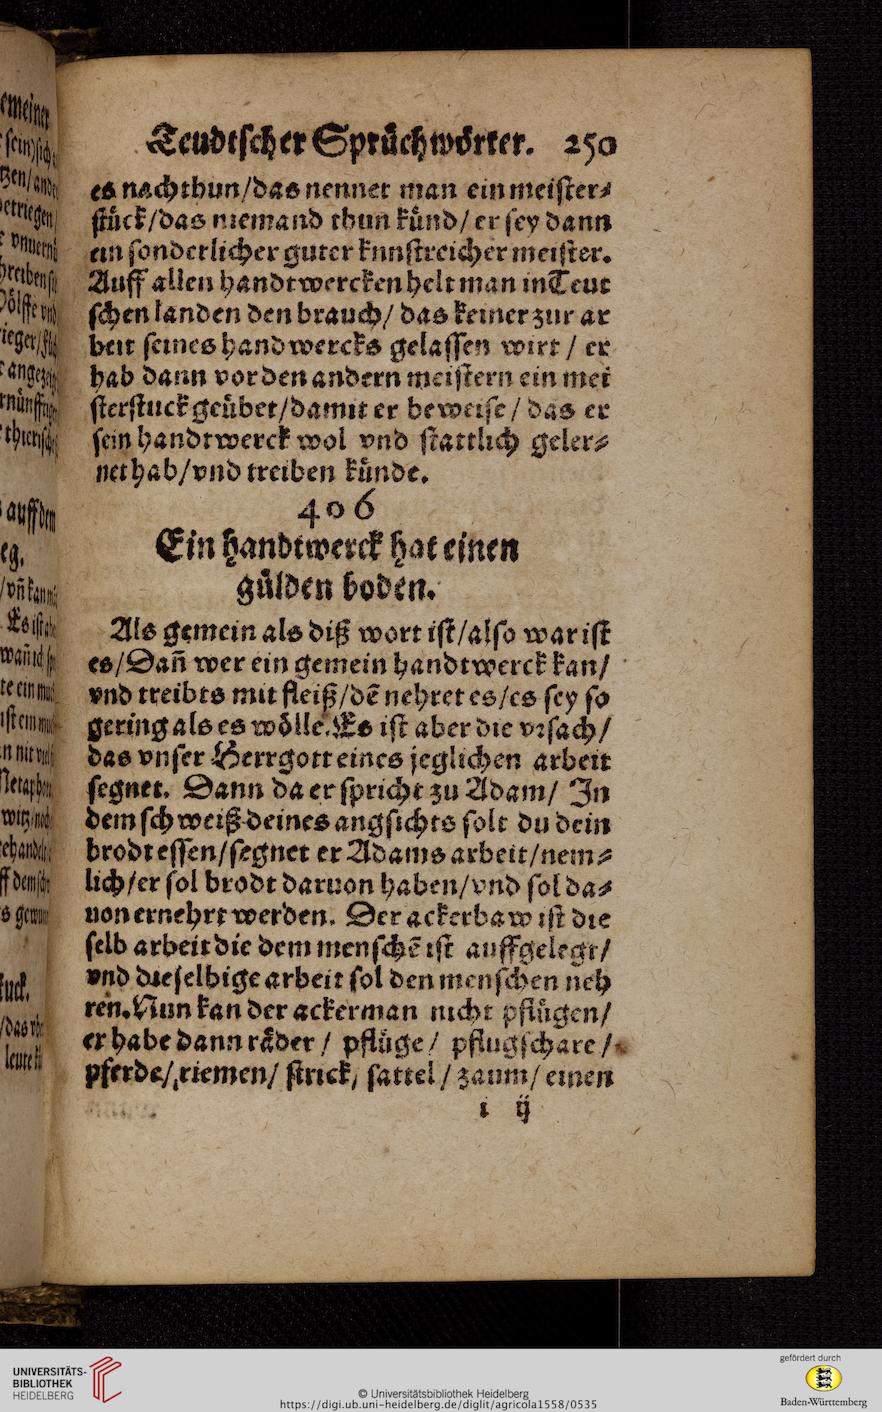 Teudtscher Sprůchwörter. 250
es nachthun/das nennet man ein meister⸗
stůck/das niemand thun kůnd/ er sey dann
ein sonderlicher guter knnstreicher meister.
Auff allen handtwercken helt man in Teut
schen landen den brauch/ das keiner zur ar
beit seines handwercks gelassen wirt / er
hab dann vor den andern meistern ein mei
sterstuck geůbet/damit er beweise / das er
sein handtwerck wol vnd stattlich geler⸗
net hab/vnd treiben kůnde.
406
Ein handtwerck hat einen
gůlden boden.
Als gemein als diß wort ist/also war ist
es/Dañ wer ein gemein handtwerck kan/
vnd treibts mit fleiß/dẽ nehret es/es sey so
gering als es wőlle. Es ist aber die vrsach/
das vnser Herrgott eines jeglichen arbeit
segnet. Dann da er spricht zu Adam/ In
dem schweiß deines angsichts solt du dein
brodt essen/segnet er Adams arbeit/nem⸗
lich/er sol brodt daruon haben/vnd sol da⸗
uon ernehrt werden. Der ackerbaw ist die
selb arbeit die dem menschẽ ist auffgelegt/
vnd dieselbige arbeit sol den menschen neh
ren. Nun kan der ackerman nicht pflůgen/
er habe dann råder / pflůge / pflugschare /
pferde/ riemen/ strick, sattel / zaum/ einen
i ij
UNIVERSITÄTS-
BIBLIOTHEK
HEIDELBERG
© Universitätsbibliothek Heidelberg
https://digi.ub.uni-heidelberg.de/diglit/agricola1558/0535
gefördert durch
Baden-Württemberg